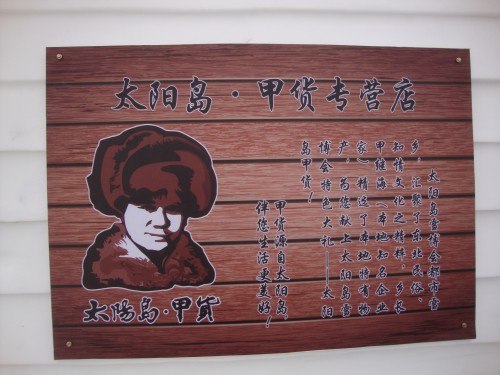 太阳岛·甲货专营店
太阳岛雪博会都市雪
乡，汇聚了东北民俗、
知情文化之精粹，乡长
甲继海（本地知名企业
家）精选了本地特有物
产，为您献上太阳岛雪
博会特色大礼——太阳
岛甲货！
甲货源自太阳岛，
伴您生活更美好！
太阳岛·甲货